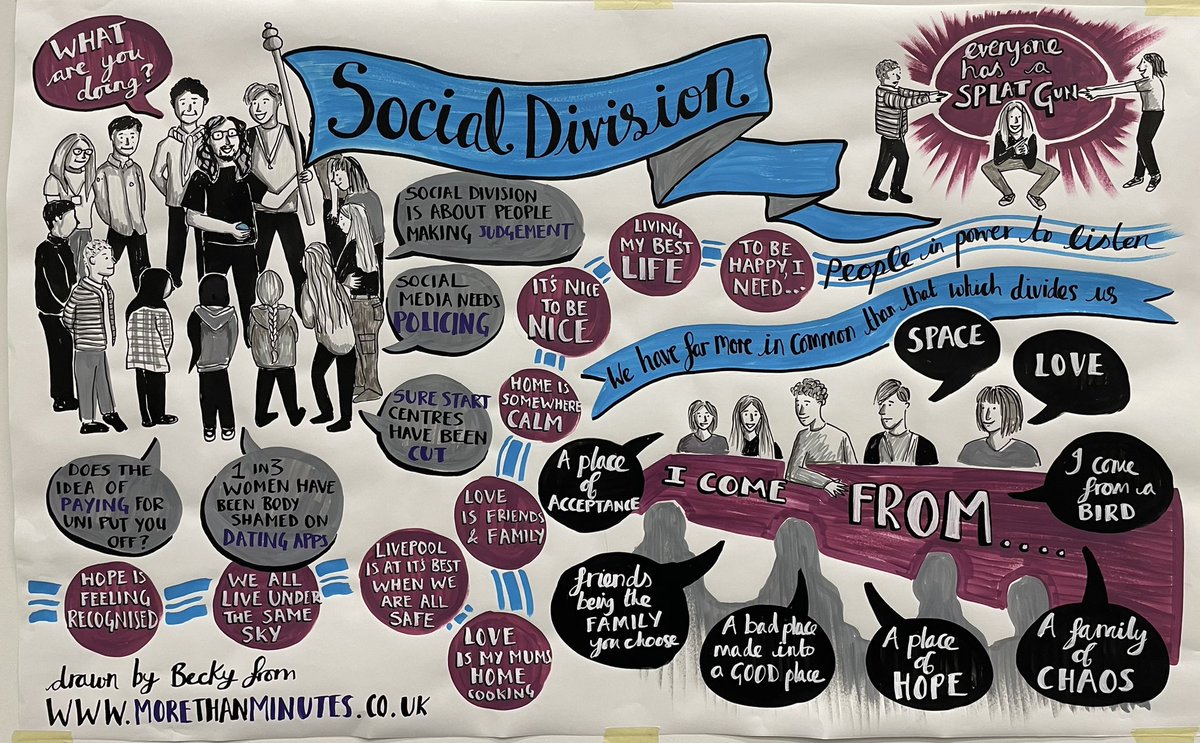 WHAT
are you
doing?
Social Division
everyone
has a
SPLAT GUN
SOCIAL DIVISION
IS ABOUT PEOPLE
MAKING JUDGEMENT
SOCIAL
MEDIA NEEDS
POLICING
SURE START
CENTRES
HAVE BEEN
CUT
DOES THE
IDEA OF
PAYING FOR
UNI PUT YOU
OFF?
1 IN 3
WOMEN HAVE
BEEN BODY
SHAMED ON
DATING APPS
HOPE IS
FEELING
RECOGNISED
WE ALL
LIVE UNDER
THE SAME
SKY
LIVEPOOL
IS AT IT'S BEST
WHEN WE
ARE ALL
SAFE
LOVE
IS MY MUMS
HOME
COOKING
LOVE
IS FRIENDS
& FAMILY
HOME IS
SOMEWHERE
CALM
IT'S NICE
TO BE
NICE
LIVING
MY BEST
LIFE
TO BE
HAPPY, I
NEED...
People in power to listen
We have far more in common than that which divides us
SPACE
LOVE
I COME FROM....
A place
of
ACCEPTANCE
I come
from a
BIRD
friends
being the
FAMILY
you choose
A bad place
made into
a GOOD place
A place
of
HOPE
A family
of
CHAOS
drawn by Becky from
WWW.MORETHANMINUTES.CO.UK